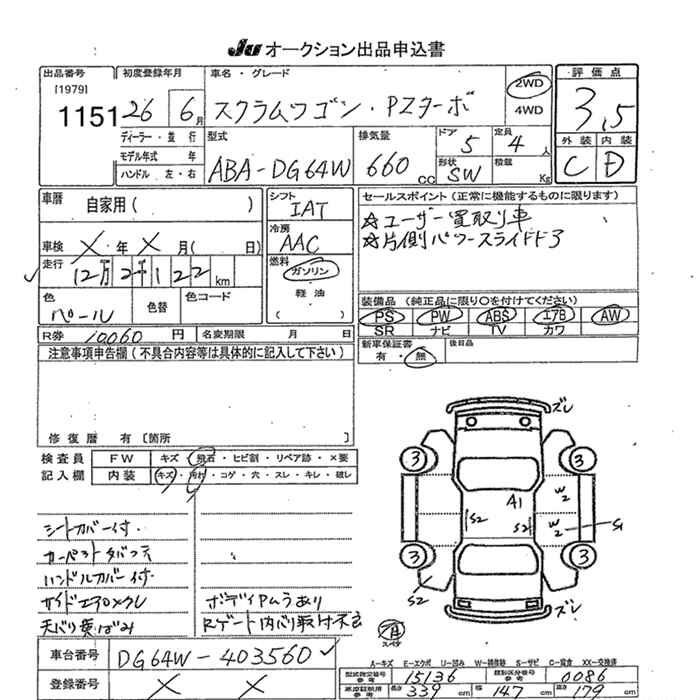 Ju オークション出品申込書
出品番号 初度登録年月 車名・グレード 評価点
[1979]
1151 26 6月 スクラムワゴン・PZターボ 2WD 4WD 3.5
ディーラー・並行 型式 排気量 ドア 定員 外装 内装
モデル年式 年 ABA-DG64W 660cc 5 4人 C D
ハンドル 左・右 形状 SW 積載 Kg
車歴 自家用 ( ) シフト セールスポイント (正常に機能するものに限ります)
IAT
☆ユーザー買取り車
☆片側パワースライドドア
冷房
車検 X 年 X 月 ( 日) AAC
走行 km 燃料
ガソリン
軽油
( )
色 色替 色コード
パール
装備品 (純正品に限り○を付けてください)
PS PW ABS エアB AW
SR ナビ TV カワ
R券 10060 円 名変期限 月 日
新車保証書 後日品
有・無
注意事項申告欄 (不具合内容等は具体的に記入して下さい)
修復歴 有 [箇所 ]
検査員 FW キズ・飛石・ヒビ割・リペア跡・×要
記入欄 内装 キズ・汚れ・コゲ・穴・スレ・キレ・破レ
ズレ
3 3
A1 W2
S2 S2 W2 S1
3 3
S2 ズレ
シートカバー付
ハンドルカバー付
サイドエアロ
ボディ ムラあり
天バリ
Rゲート内バリ取付不良
スペア
車台番号 DG64W-403560
登録番号 X X
A-キズ E-エクボ U-凹み W-補修跡 S-サビ C-腐食 XX-交換済
型式指定番号 参考 15136 類別区分番号 参考 0086
長さ 339 cm 幅 147 cm 高さ 179 cm